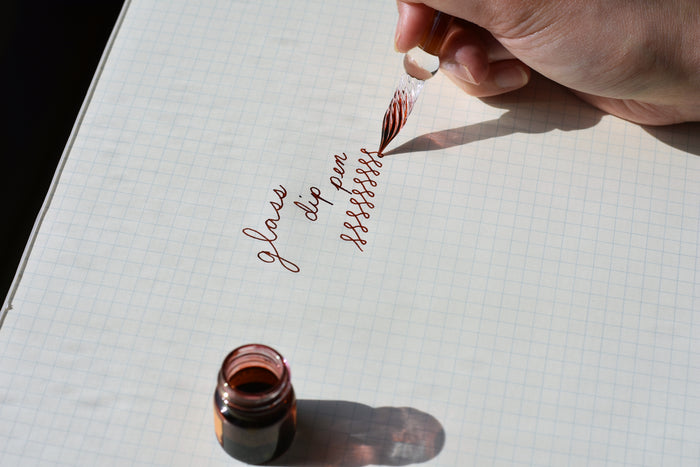 glass
dip pen